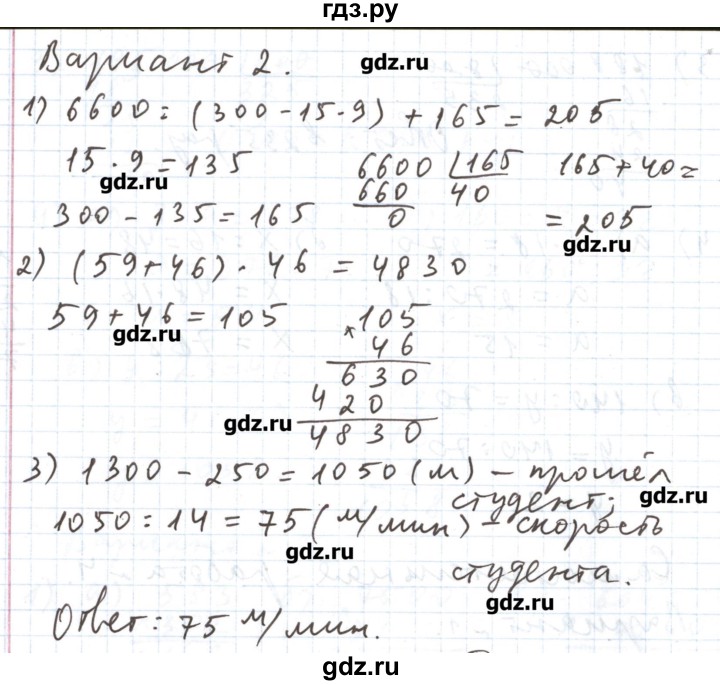 гдз.ру
Вариант 2.
gdz.ru
1) 6600 : (300 - 15 · 9) + 165 = 205
15 · 9 = 135
6600 | 165
165 + 40 =
gdz.ru
660
40
300 - 135 = 165
0
= 205
gdz.ru
2) (59 + 46) · 46 = 4830
59 + 46 = 105
gdz.ru
105
× 46
630
420
gdz.ru
4830
3) 1300 - 250 = 1050 (м) - прошёл
студент;
gdz.ru
1050 : 14 = 75 (м/мин) - скорость
gdz.ru
студента.
gdz.ru
Ответ: 75 м/мин.
gdz.ru